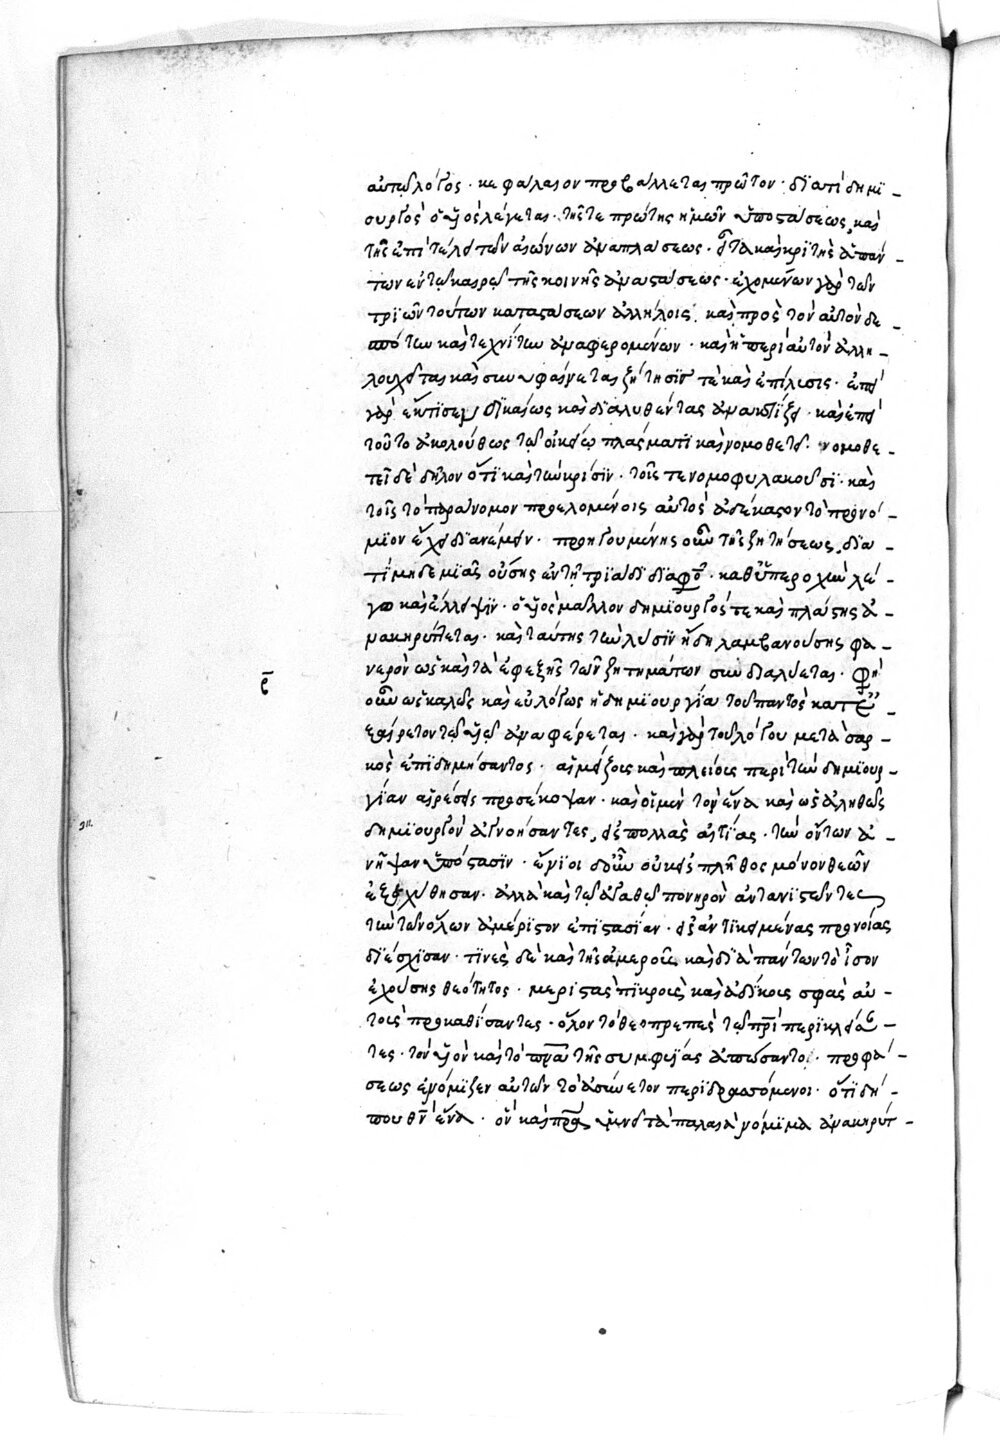 αυτῶ λόγος · κεφάλαιον προβάλλεται πρῶτον · διατί δημι-
ουργὸς ὁ υἱὸς λέγεται · τῆς τε πρώτης ἡμῶν ὑποστάσεως, καὶ
τῆς ἐπὶ τέλει τῶν αἰώνων ἀναπλάσεως · εἶτα καὶ κριτὴς ἁπάν-
των ἐν τῶ καιρῶ τῆς κοινῆς ἀναστάσεως · ἐχομένων γὰρ τῶν
τριῶν τούτων καταστάσεων ἀλλήλοις καὶ πρὸς τὸν αὐτὸν δε-
σπότην καὶ τεχνίτην ἀναφερομένων · καὶ ἡ περὶ αὐτὸν ἀλλη-
λουχεῖται καὶ συνυφαίνεται ζήτησίς τε καὶ ἐπίλυσις · ἐπεὶ
γὰρ ἔκτισεν δικαίως καὶ διαλυθέντας ἀνακτίζει · καὶ ἐπεὶ
τοῦτο ἀκολούθως τῶ οἰκείω πλάσματι καὶ νομοθετεῖ · νομοθε-
τεῖ δὲ δῆλον ὅτι καὶ τὴν κρίσιν · τοῖς τε νομοφυλακοῦσι · καὶ
τοῖς τὸ παράνομον προελομένοις αὐτὸς ἀδέκαστον τὸ προνό-
μιον ἔχει διανέμειν · προηγουμένης οὖν τῆς ζητήσεως, δια-
τί μηδεμιᾶς οὔσης ἐν τῆ τριάδι διαφορᾶς · καθ' ὑπεροχὴν λέ-
γω καὶ ἔλλειψιν · ὁ υἱὸς μᾶλλον δημιουργός τε καὶ πλάστης ἀ-
νακηρύττεται · καὶ ταύτης τὴν λύσιν ἤδη λαμβανούσης φα-
νερὸν ὡς καὶ τὰ ἐφεξῆς τῶν ζητημάτων συνδιαλύεται · φημὶ
οὖν ὡς καλῶς καὶ εὐλόγως ἡ δημιουργία τοῦ παντὸς κατ'
ἐξαίρετον τῶ υἱῶ ἀναφέρεται · καὶ γὰρ τοῦ λόγου μετὰ σαρ-
κὸς ἐπιδημήσαντος · αἱ μείζοις καὶ πλείοις περὶ τὴν δημιουρ-
γίαν αἱρέσεις προσέκοψαν · καὶ οἱ μὲν τὸν ἕνα καὶ ὡς ἀληθῶς
δημιουργὸν ἀγνοήσαντες, εἰς πολλὰς αἰτίας · τὴν ὄντων ἀ-
νῆψαν ὑπόστασιν · ἔνιοι δ' οὖν οὐκ εἰς πλῆθος μόνον θεῶν
ἐξεχύθησαν · ἀλλὰ καὶ τῶ ἀγαθῶ πονηρὸν ἀντανιστῶντες
τὴν τῶν ὅλων ἀμέριστον ἐπιστασίαν · εἰς ἀντικειμένας προνοίας
διέσχισαν · τινὲς δὲ καὶ τῆς ἀμεροῦς καὶ διὰ πάντων τὸ ἶσον
ἐχούσης θεότητος · μεριστὰς πικροὺς καὶ ἀδίκους σφᾶς αὐ-
τοὺς προκαθίσαντες · ὅλον τὸ θεοπρεπὲς τῶ πρὶ περικλείσαν-
τες · τὸν υἱὸν καὶ τὸ πνα τῆς συμφυΐας ἀπώσαντο · προφά-
σεως ἐνόμιζεν αὐτῶν τὸ ἀσύνετον περιδραττόμενοι · ὅτι δή-
που θν ἕνα · ὃν καὶ πρα ὑμνεῖ τὰ παλαιὰ νόμιμα ἀνακηρύτ-
ε